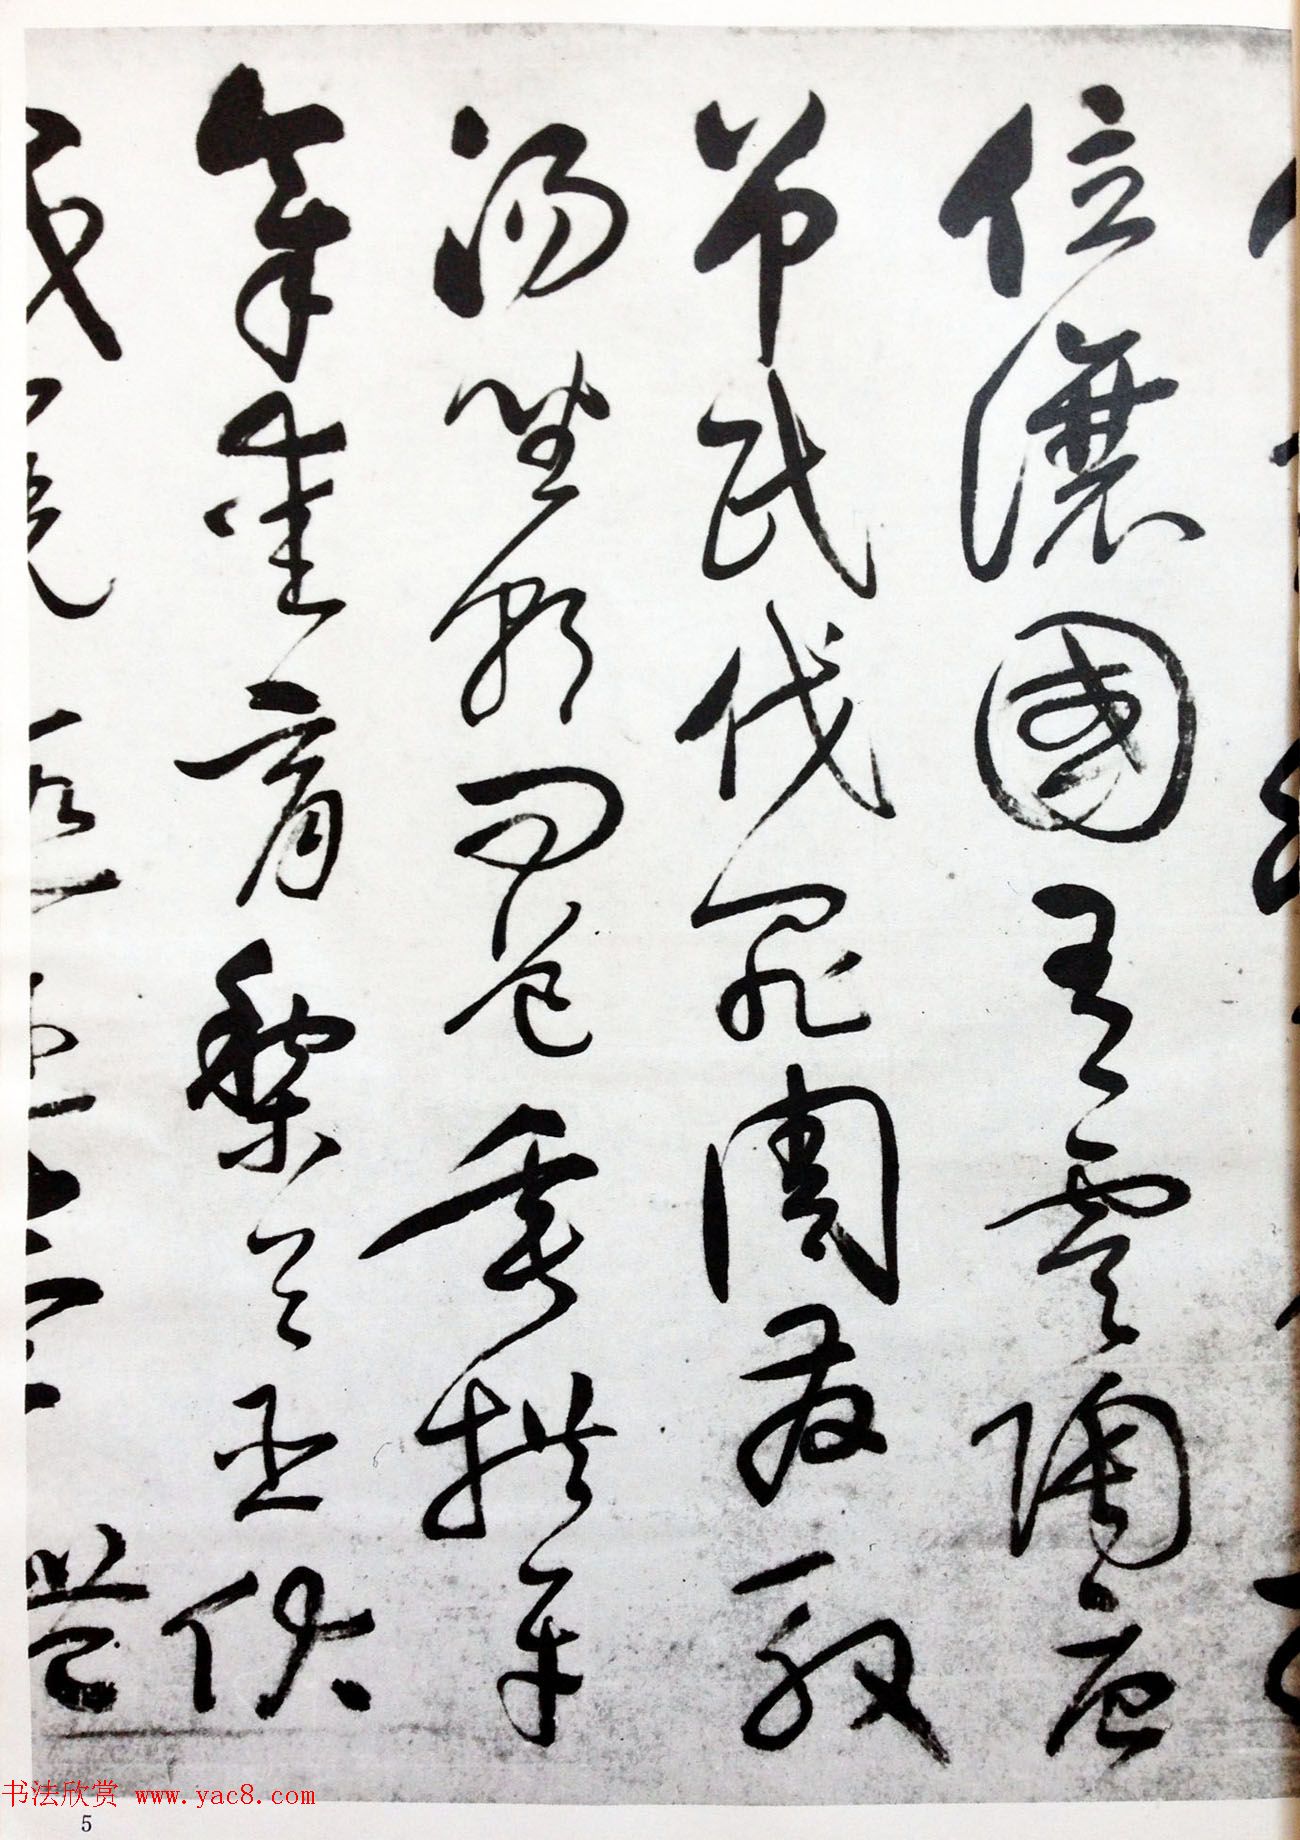 位讓國有虞陶唐
弔民伐罪周發殷
湯坐朝問道垂拱平
章愛育黎首臣伏
戎羌遐邇壹體
书法欣赏 www.yac8.com
5